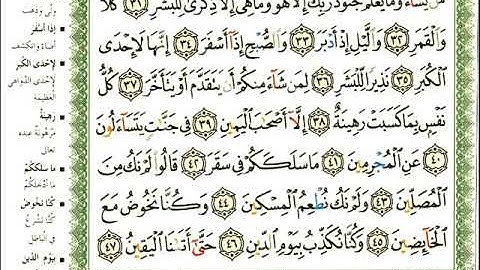 مَن يَشَآءُ وَمَا يَعْلَمُ جُنُودَ رَبِّكَ إِلَّا هُوَ وَمَا هِىَ إِلَّا ذِكْرَىٰ لِلْبَشَرِ ٣١ كَلَّا
وَٱلْقَمَرِ ٣٢ وَٱلَّيْلِ إِذْ أَدْبَرَ ٣٣ وَٱلصُّبْحِ إِذَآ أَسْفَرَ ٣٤ إِنَّهَا لَإِحْدَى
ٱلْكُبَرِ ٣٥ نَذِيرًا لِّلْبَشَرِ ٣٦ لِمَن شَآءَ مِنكُمْ أَن يَتَقَدَّمَ أَوْ يَتَأَخَّرَ ٣٧ كُلُّ
نَفْسٍۭ بِمَا كَسَبَتْ رَهِينَةٌ ٣٨ إِلَّآ أَصْحَٰبَ ٱلْيَمِينِ ٣٩ فِى جَنَّٰتٍ يَتَسَآءَلُونَ
٤٠ عَنِ ٱلْمُجْرِمِينَ ٤١ مَا سَلَكَكُمْ فِى سَقَرَ ٤٢ قَالُوا۟ لَمْ نَكُ مِنَ
ٱلْمُصَلِّينَ ٤٣ وَلَمْ نَكُ نُطْعِمُ ٱلْمِسْكِينَ ٤٤ وَكُنَّا نَخُوضُ مَعَ
ٱلْخَآئِضِينَ ٤٥ وَكُنَّا نُكَذِّبُ بِيَوْمِ ٱلدِّينِ ٤٦ حَتَّىٰٓ أَتَىٰنَا ٱلْيَقِينُ ٤٧
ولّى وذهب
إِذَا أَسْفَرَ
أضاء وانكشف
لَإِحْدَى الكُبَرِ
لإحدى الدواهي
العظيمة
رَهِينَةٌ
مرهونة عنده
تعالى
مَا سَلَكَكُمْ
ما أدخلكم
كُنَّا نَخُوضُ
كنا نشرع
في الباطل
بِيَوْمِ الدِّينِ